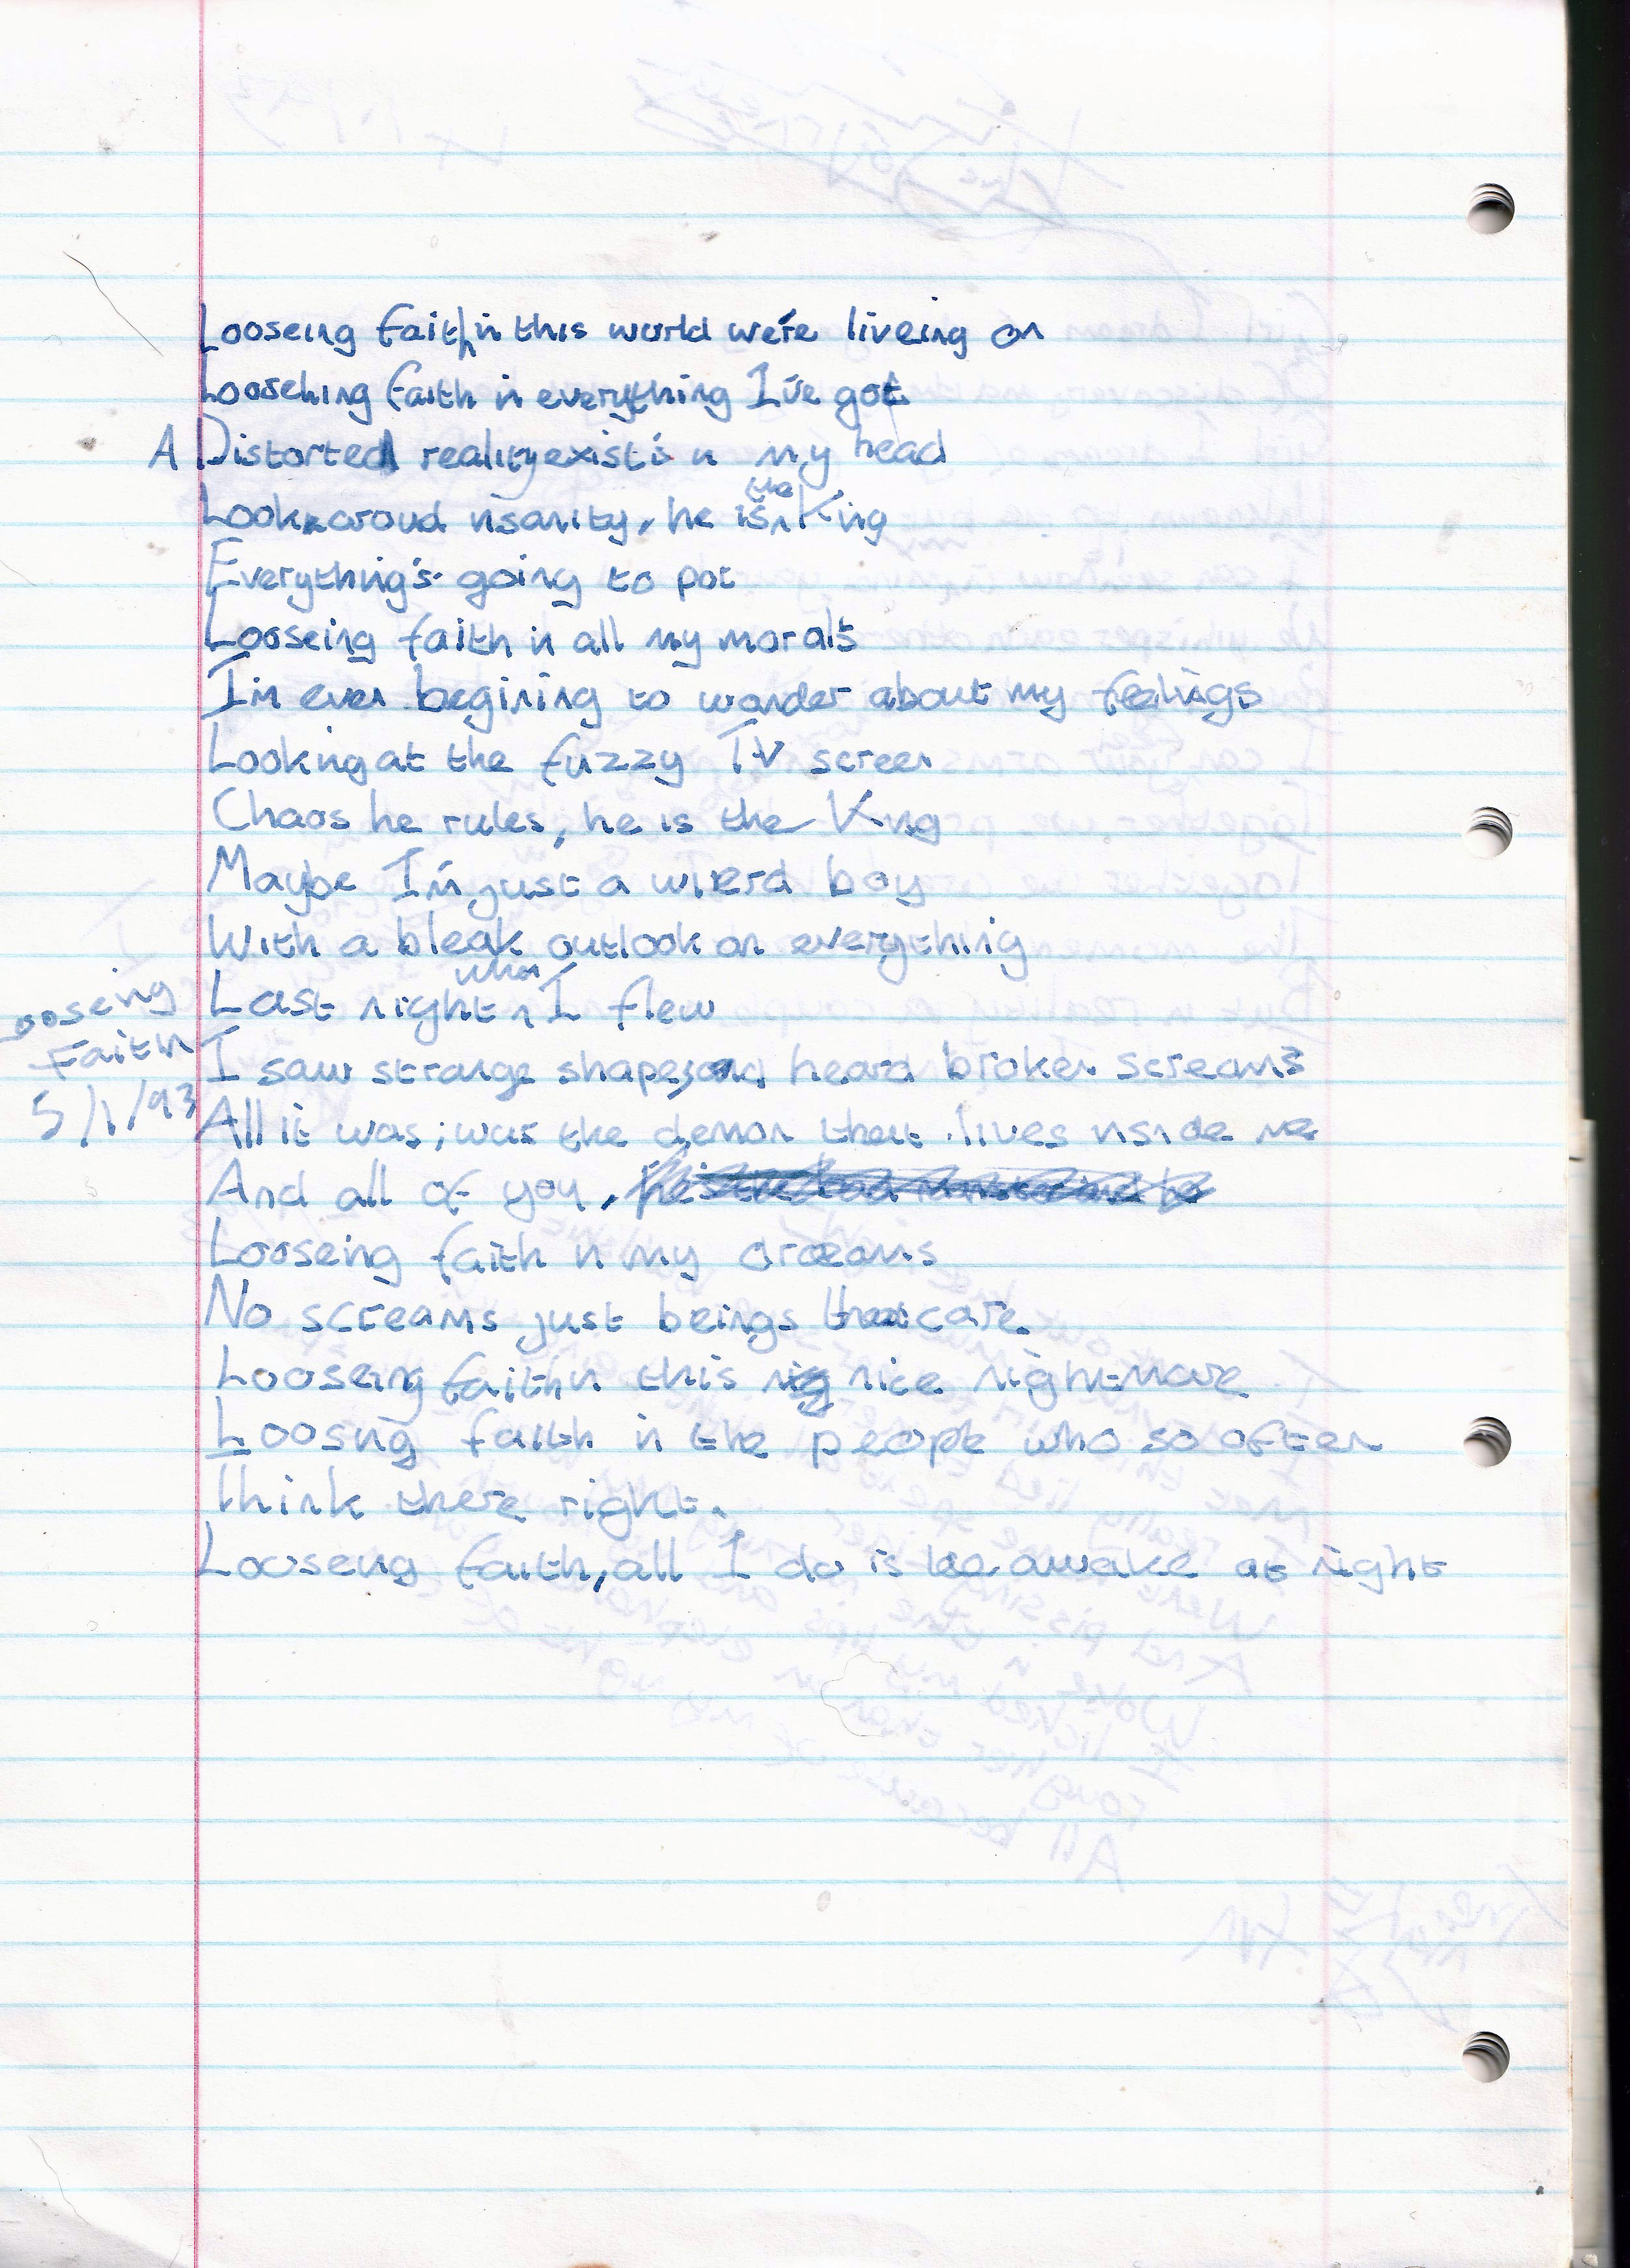 Looseing faith in this world we're liveing on
Looseing faith in everything I've got
A Distorted reality exist's in my head
Look aroud insanity, he is the King
Everything's going to pot
Looseing faith in all my morals
I'm even begining to wonder about my feelings
Looking at the fuzzy TV screen
Chaos he rules, he is the King
Maybe I'm just a wierd boy
With a bleak outlook on everything
Last night when I flew
I saw strange shapes, and heard broken screams
All it was; was the demon that lives inside me
And all of you,
Looseing faith in my dreams
No screams just beings that care.
Looseing faith in this nice nightmare
Loosing faith in the people who so often
think there right.
Looseing faith, all I do is lie awake at night
Looseing
Faith
5/1/93